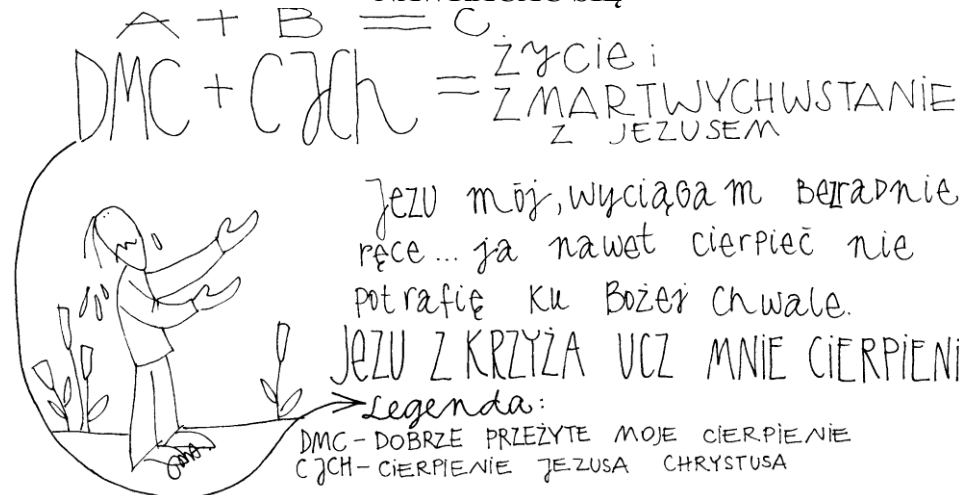 A + B = C
DMC + CJCh = życie i
ZMARTWYCHWSTANIE
Z JEZUSEM
Jezu mój, wyciągam bezradnie
ręce... ja nawet cierpieć nie
potrafię ku Bożej chwale.
JEZU Z KRZYŻA UCZ MNIE CIERPIENI
Legenda:
DMC - DOBRZE PRZEŻYTE MOJE CIERPIENIE
CJCH - CIERPIENIE JEZUSA CHRYSTUSA